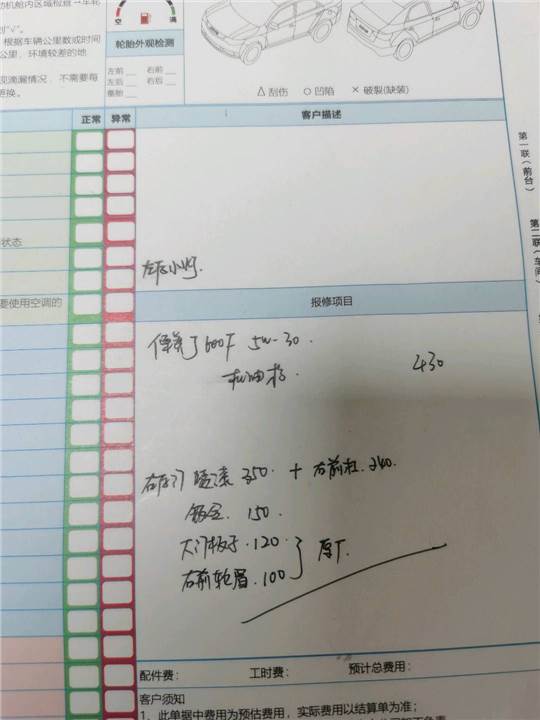 动机舱内区域检查→车轮
到"√"。
根据车辆公里数或时间
公里，环境较差的地
现滴漏情况，不需要每
更换。
空 满
轮胎外观检测
左前 右前
左后 右后
备胎
△ 刮伤 ○ 凹陷 × 破裂(缺装)
正常 异常 客户描述
第一联（前台）
第二联（车间）
状态
要使用空调的
左右小灯.
报修项目
600F 5W-30.
机油格. 430
右后门 喷漆 350. + 右前杠. 240.
钣金. 150.
大门板子. 120
右前轮眉. 100 } 原厂.
配件费： 工时费： 预计总费用：
客户须知
1、此单据中费用为预估费用，实际费用以结算单为准；